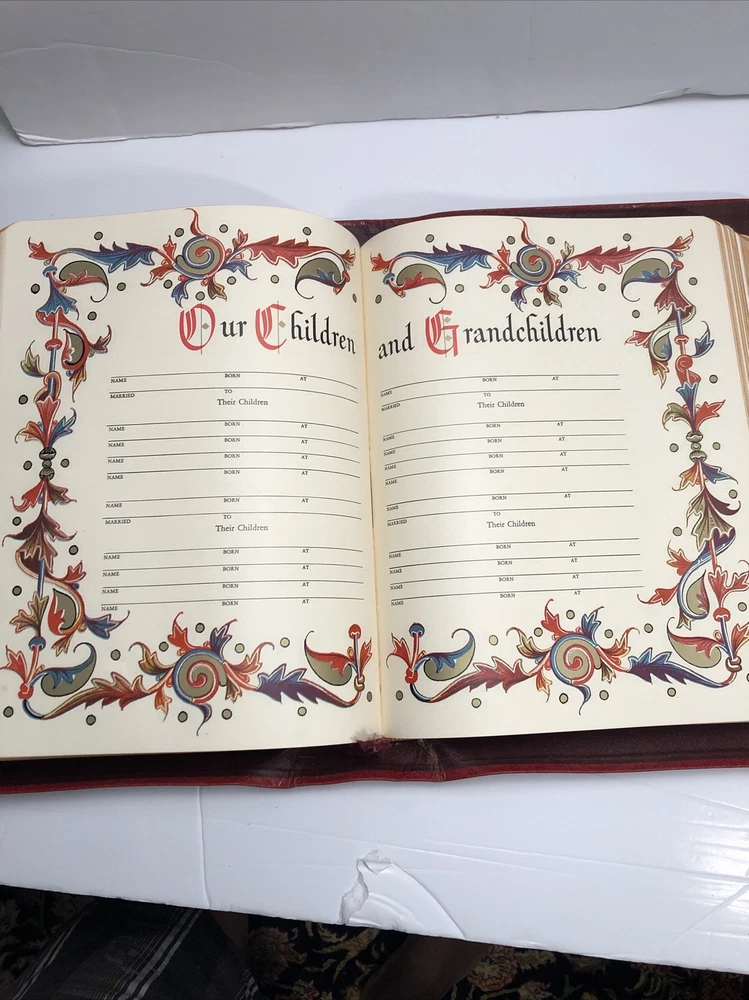 Our Children
NAME BORN AT
MARRIED TO
Their Children
NAME BORN AT
NAME BORN AT
NAME BORN AT
NAME BORN AT
NAME BORN AT
MARRIED TO
Their Children
NAME BORN AT
NAME BORN AT
NAME BORN AT
NAME BORN AT
and Grandchildren
NAME BORN AT
MARRIED TO
Their Children
NAME BORN AT
NAME BORN AT
NAME BORN AT
NAME BORN AT
NAME BORN AT
MARRIED TO
Their Children
NAME BORN AT
NAME BORN AT
NAME BORN AT
NAME BORN AT